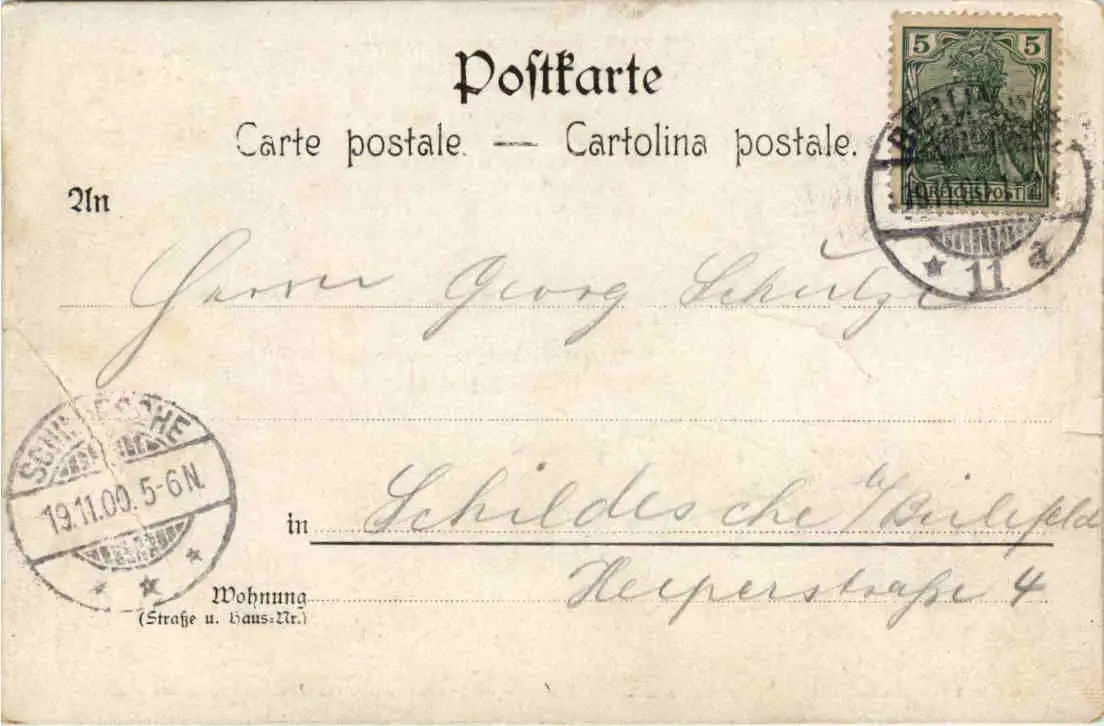 Postkarte
Carte postale. — Cartolina postale.
5 5
REICHSPOST
11 a
An
Herrn Georg Schultze
SCHILDESCHE
19.11.00. 5-6 N.
in Schildesche b/ Bielefeld
Wohnung
(Straße u. Haus=Nr.)
4